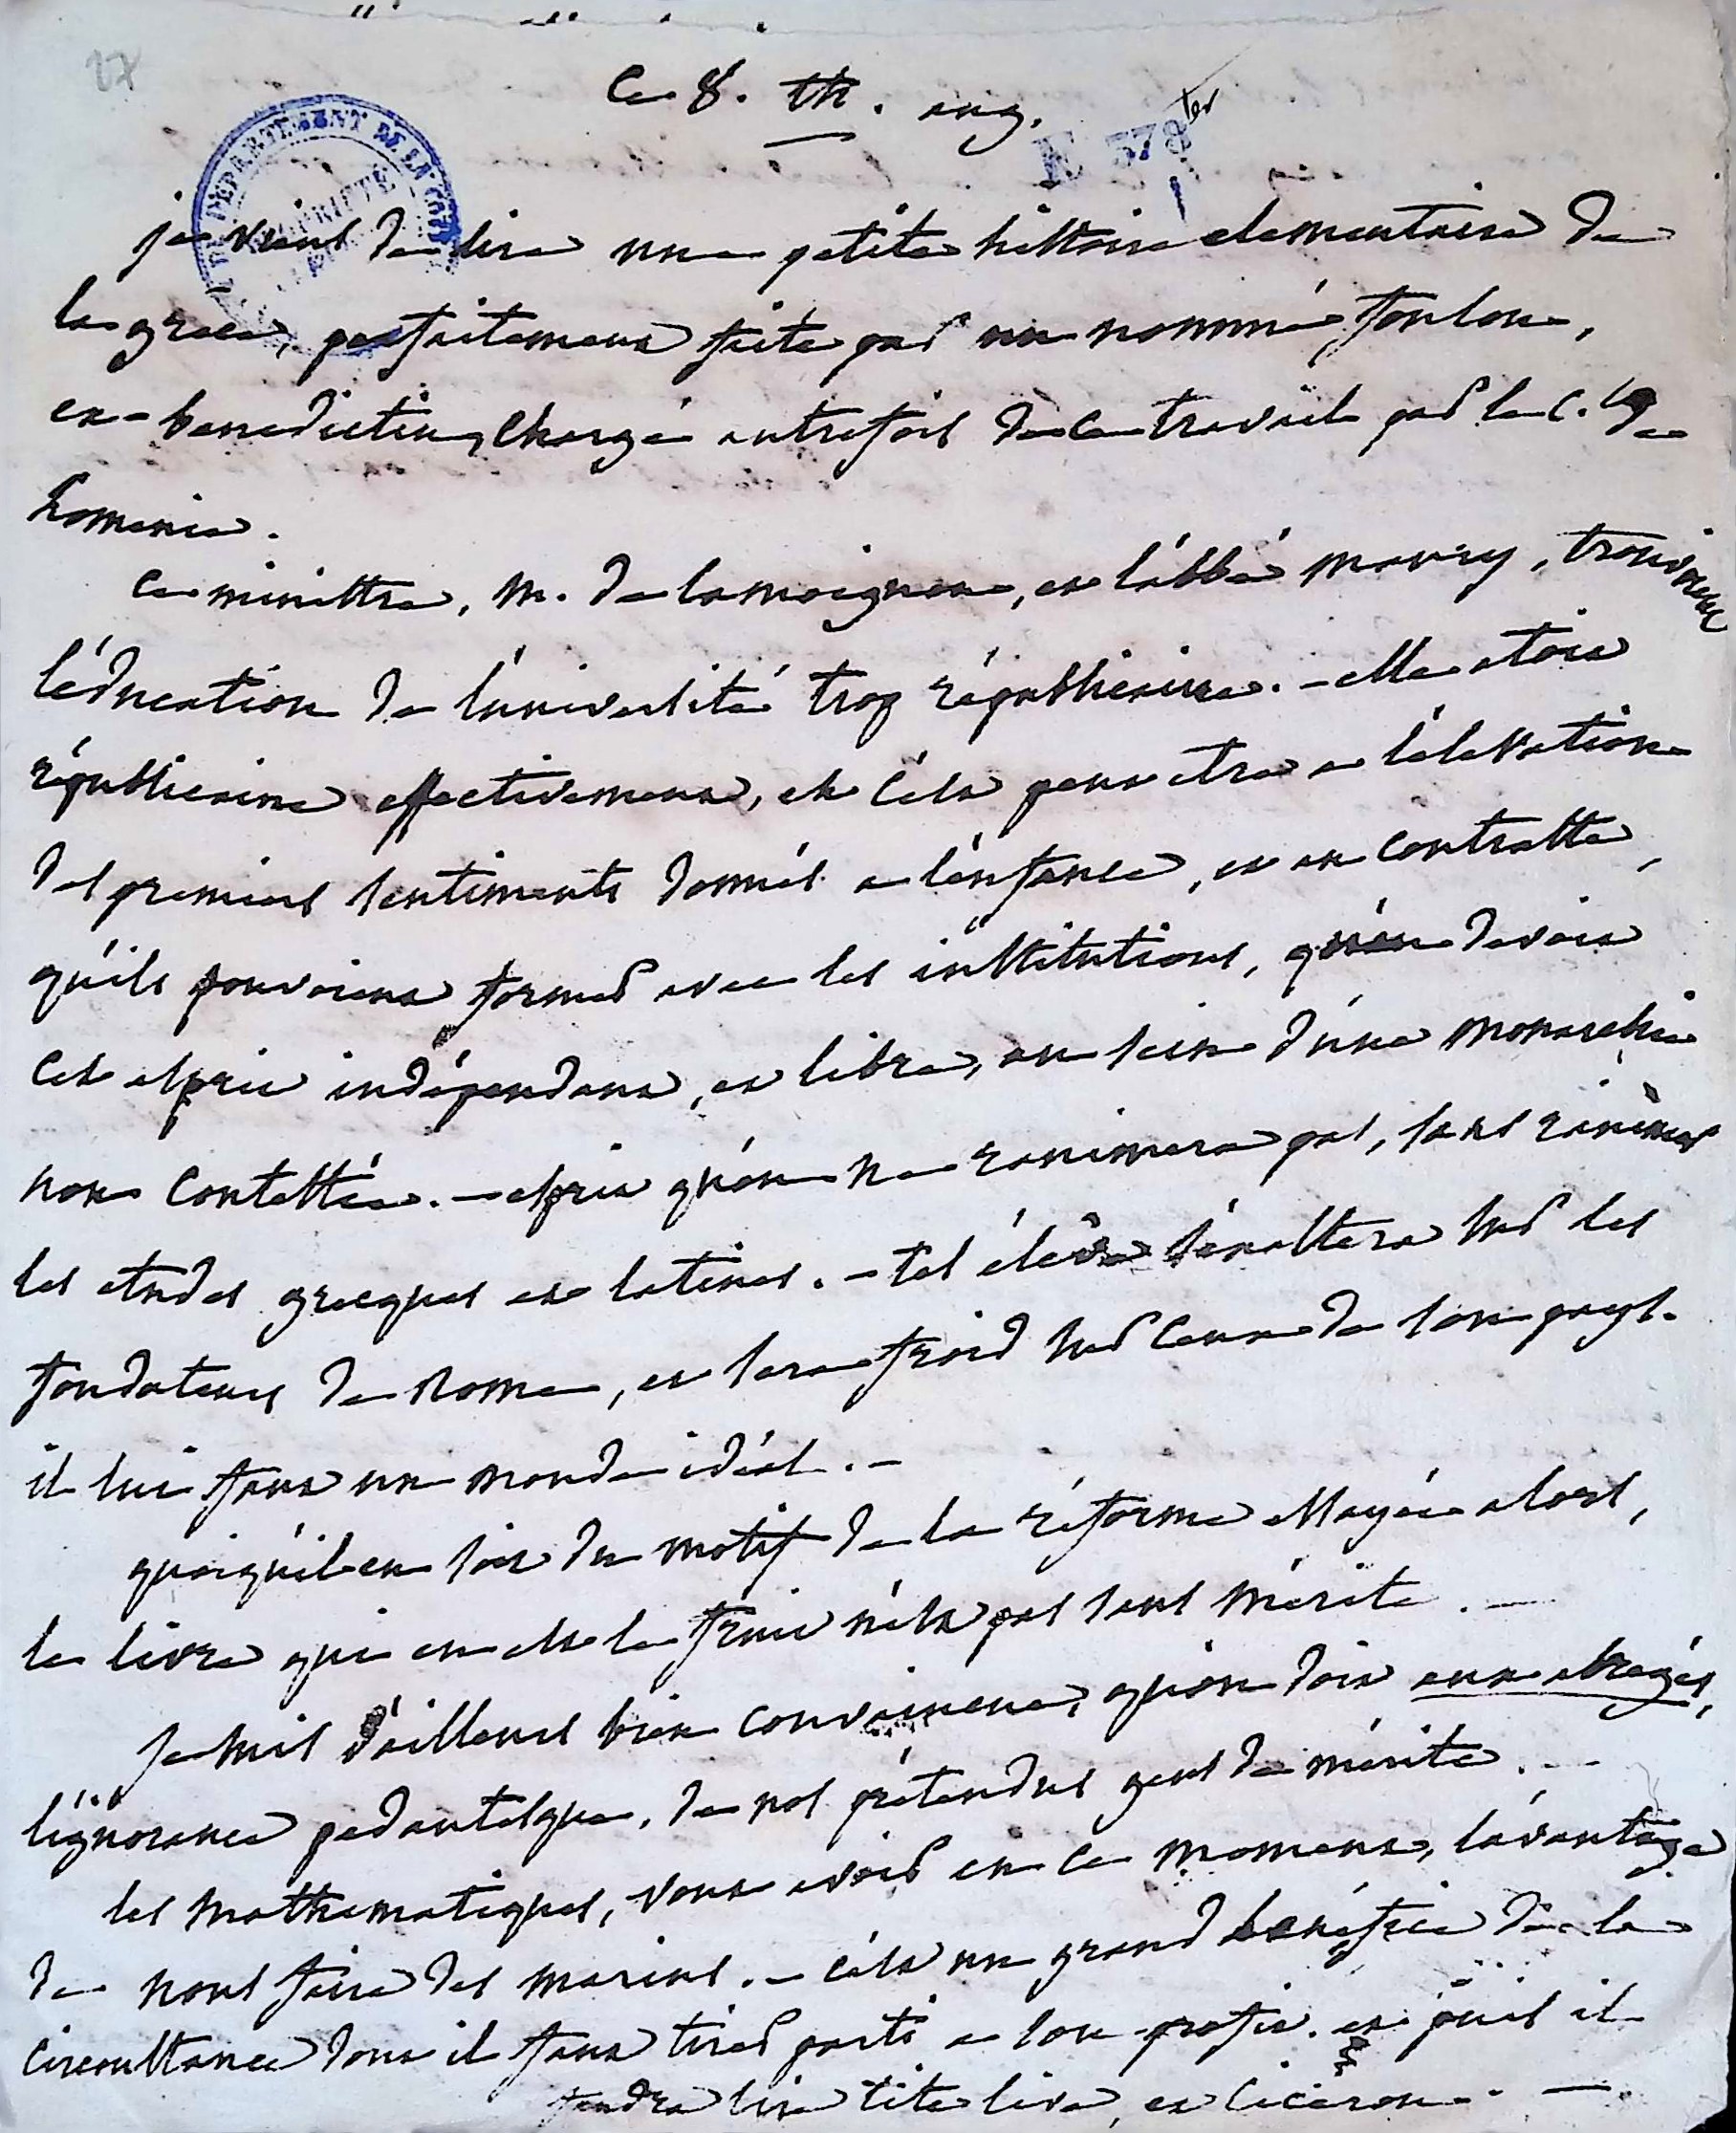 27
Ce 8. th. aug.
E 378 ter
DÉPARTEMENT DE LA CÔTE
PROPRIÉTÉ
je viens de lire une petite histoire elementaire de
la grèce, parfaitement faite par un nommé foulon,
ex-benedictin, chargé autrefois de ce travail par le C. de
Lomenie.
Ce ministre, M. de lamoignon, et l'abbé maury, trouvoient
l'éducation de l'université trop républicaine. - elle etoit
républicaine effectivement, et cela peut etre a l'élévation
des premiers sentiments donnés a l'enfance, et au contraste,
qu'ils pouvoient former avec les institutions, qu'on devoit
cet esprit indépendant, et libre, au sein d'une monarchie
non contestée. - esprit qu'on ne ranimera pas, sans ranimer
les etudes grecques et latines. - tel élève s'exaltera sur les
fondateurs de Rome, et sera froid sur ceux de son pays.
il lui faut un monde idéal. -
quoiqu'il en soit du motif de la réforme essayée alors,
le livre qui en est le fruit n'est pas sans mérite. -
Je suis d'ailleurs bien convaincu, qu'on doit aux abrégés,
l'ignorance pedantesque, de nos prétendus gens de mérite. -
les mathematiques, vont avoir en ce moment, l'avantage
de nous faire des marins. - c'est un grand bénéfice de la
circonstance dont il faut tirer parti a son profit. et puis il
faudra lire tite live, et Ciceron. -